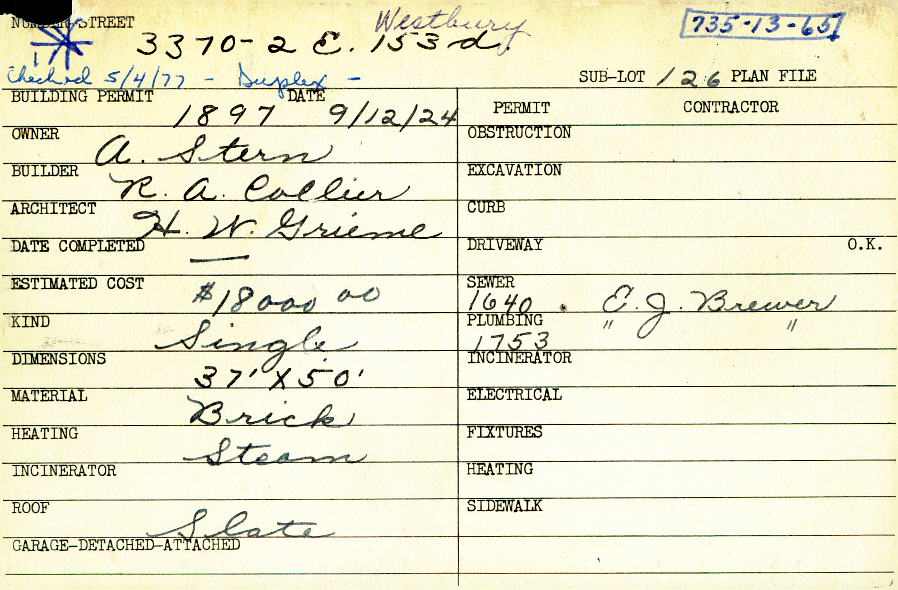 NUMBER STREET Westbury 735-13-65
3370-2 E. 153d
Checked 5/4/77 - Duplex - SUB-LOT 126 PLAN FILE
BUILDING PERMIT DATE PERMIT CONTRACTOR
1897 9/12/24
OWNER A. Stern OBSTRUCTION
BUILDER R. A. Collier EXCAVATION
ARCHITECT H. W. Grieme CURB
DATE COMPLETED — DRIVEWAY O.K.
ESTIMATED COST $18000 00 SEWER 1640 . E. J. Brewer
KIND Single PLUMBING 1753 " "
DIMENSIONS 37' X 50' INCINERATOR
MATERIAL Brick ELECTRICAL
HEATING Steam FIXTURES
INCINERATOR HEATING
ROOF Slate SIDEWALK
GARAGE-DETACHED-ATTACHED